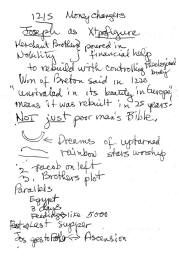 1215 Money changers
Joseph as Xt prefigure
Merchant Brothers poured in
Nobility financial help
to rebuild with controlling
Wm of Breton said in 1220
"unrivaled in its beauty in Europe"
means it was rebuilt in 25 years.
NOT just poor man's Bible.
Dreams of upturned
rainbow stars worship
2 Jacob on left
3. Brothers plot
Parallels
Egypt
3 days
Feeding like 5000
Supper
Ascension